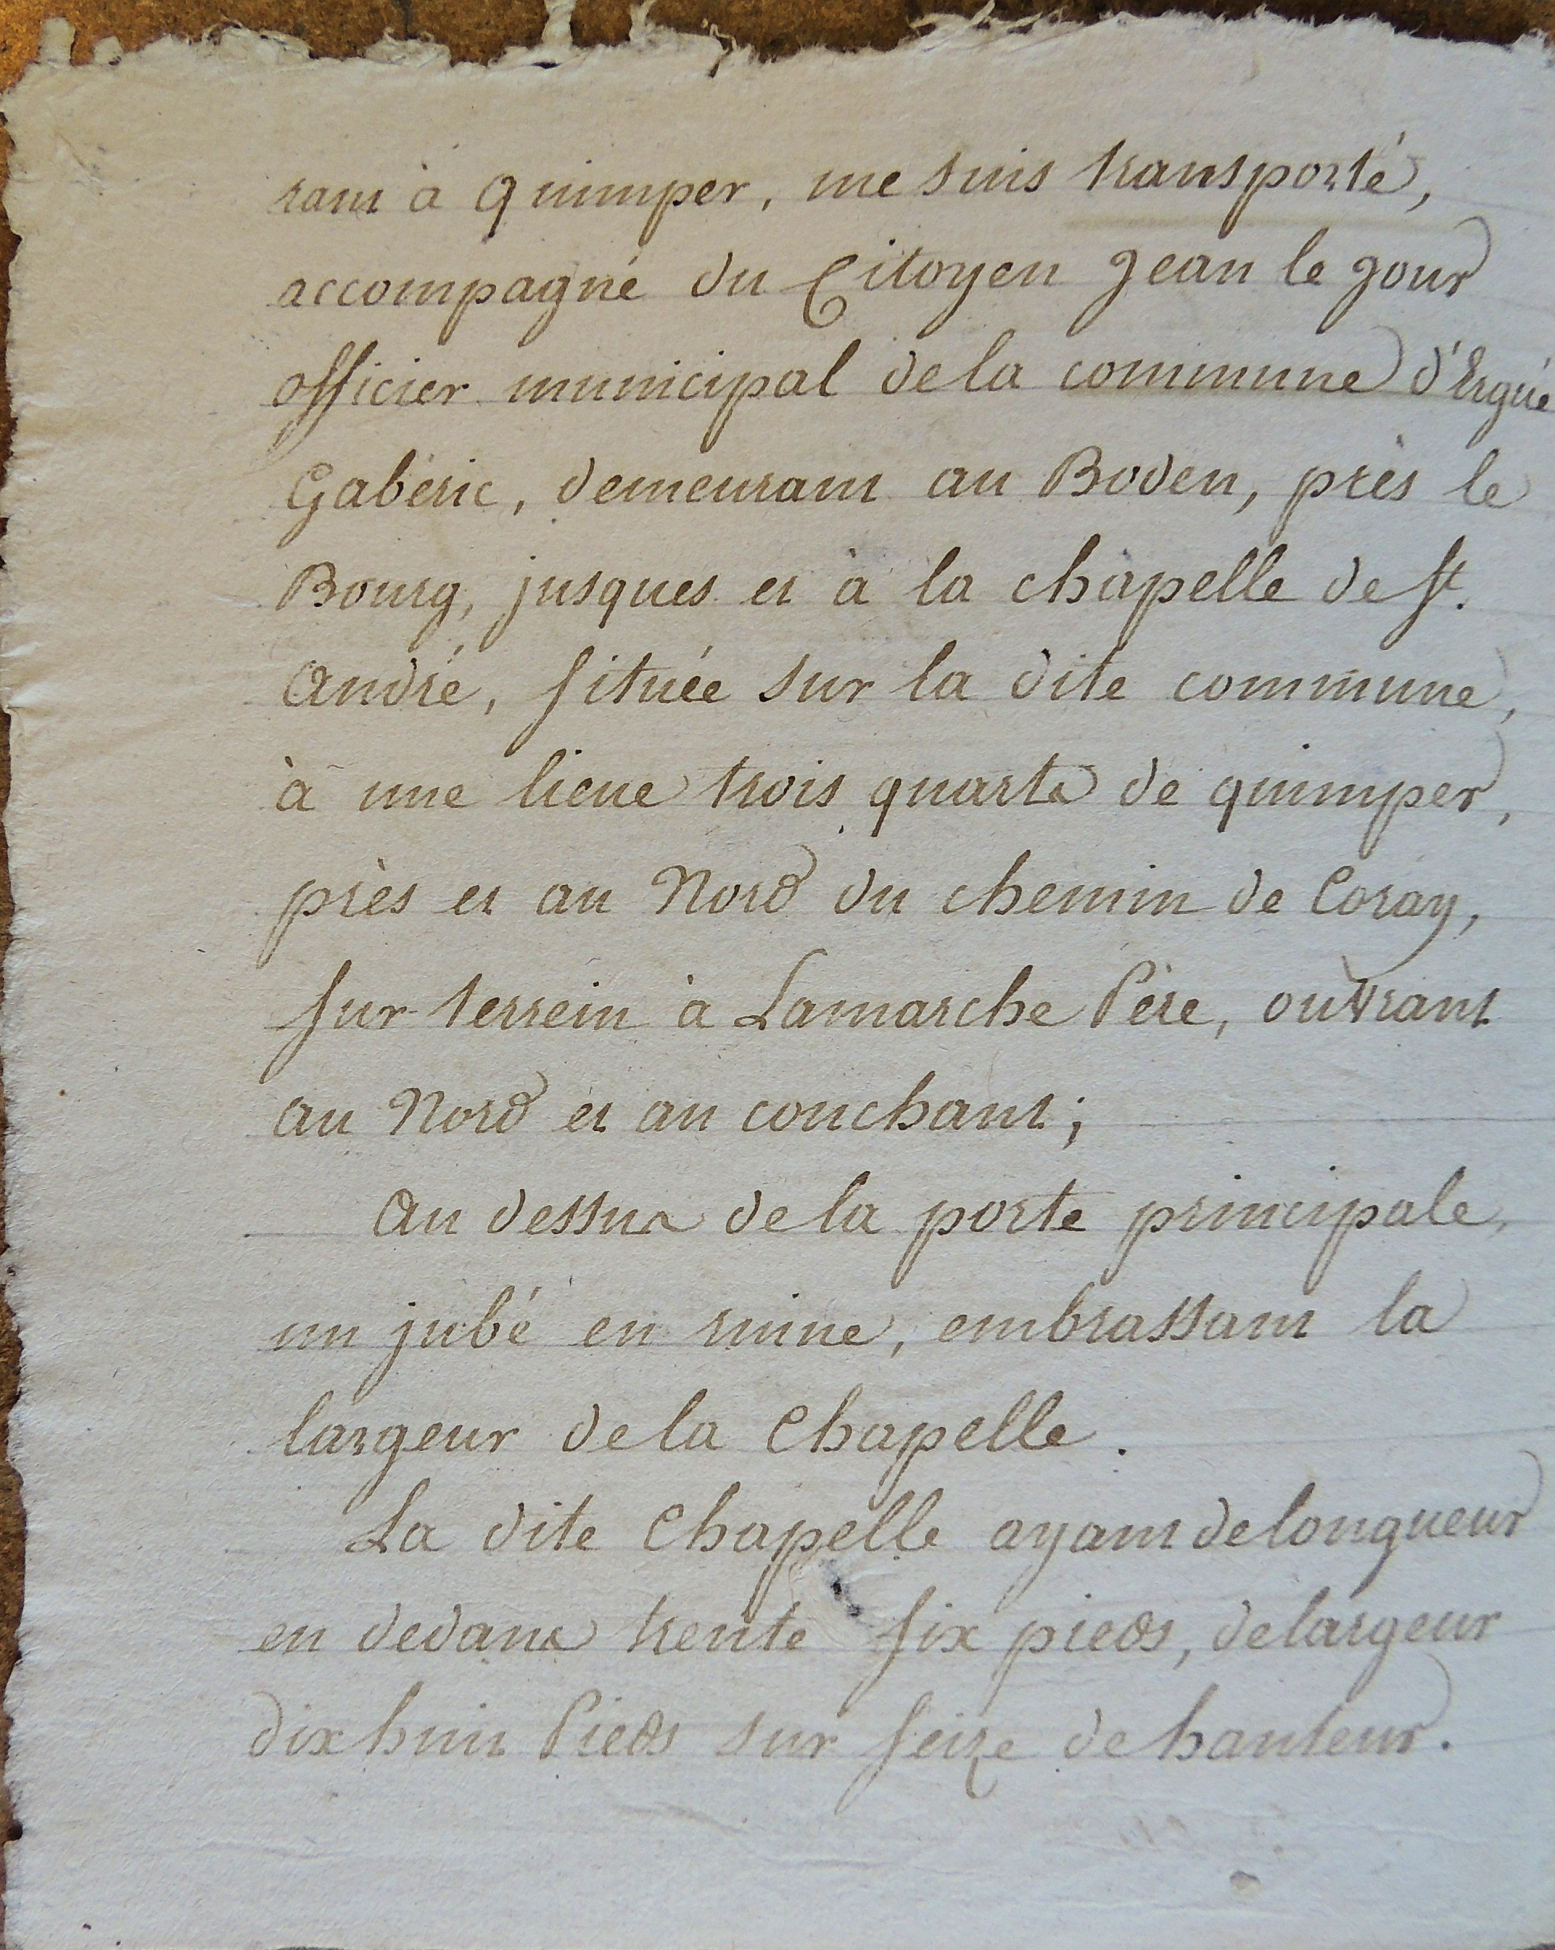 rant à Quimper, me suis transporté,
accompagné du Citoyen Jean le Jour
officier municipal de la commune d'Ergué
Gabéric, demeurant au Boden, près le
Bourg, jusques et à la chapelle de St.
André, située sur la dite commune,
à une lieue trois quarts de quimper,
près et au Nord du chemin de Coray,
sur terrein à Lamarche Père, ouvrant
au Nord et au couchant;
Au dessus de la porte principale,
un jubé en ruine, embrassant la
largeur de la Chapelle.
La dite Chapelle ayant de longueur
en dedans trente six pieds, de largeur
dix huit Pieds sur seize de hauteur.